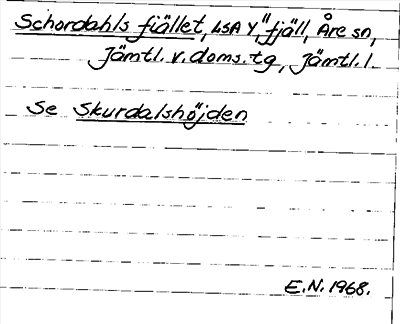 Schordahls fiället, LSA Y,11 fjäll, Åre sn,
Jämtl.v.doms.tg, Jämtl.l.
Se Skurdalshöjden
E.N.1968.